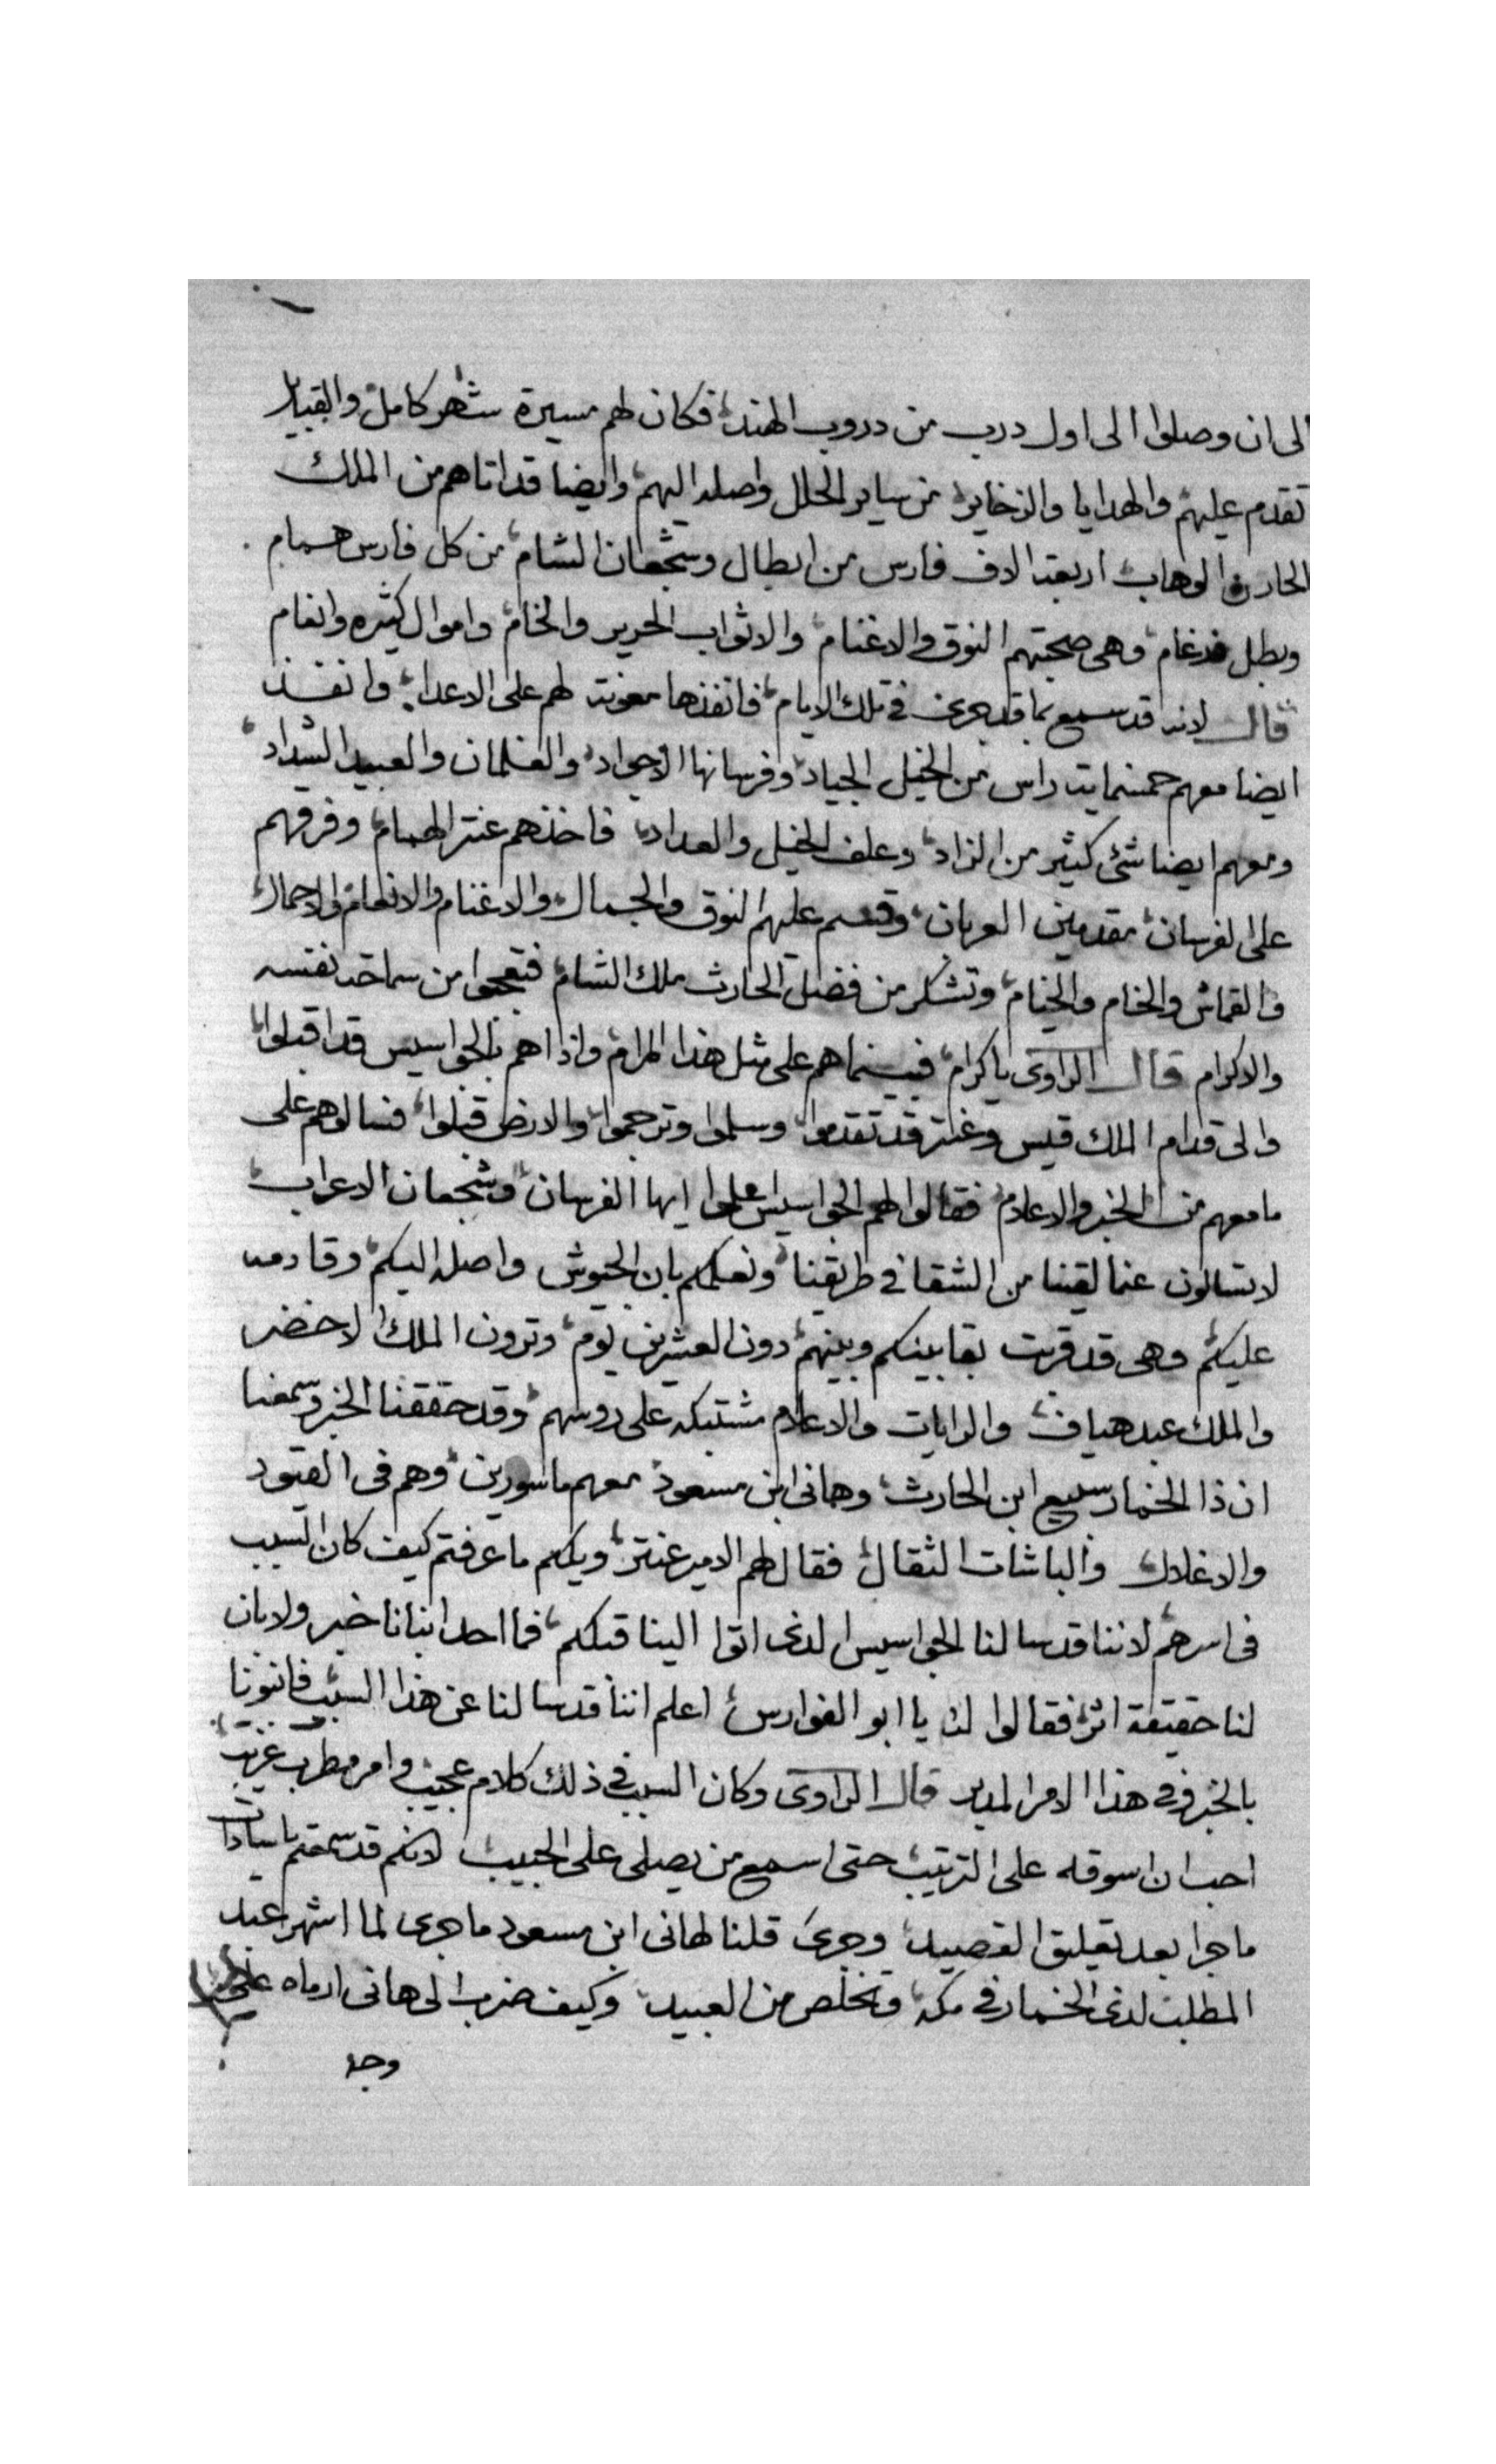 الى ان وصلوا الى اول درب من دروب الهند فكان لهم مسيرة شهر كامل والقبايل
تقدم عليهم والهدايا والذخاير من ساير الحلل واصله اليهم وايضا قد اتاهم من الملك
الحارث الوهاب اربعة الاف فارس من ابطال وشجعان الشام من كل فارس همام
وبطل ضرغام وهى صحبتهم النوق والاغنام والاثواب الحرير والخام واموال كثيره وانعام
قال لانه قد سمع بما قد جرى فى تلك الايام فانفذها معونة لهم على الاعدا وانفذ
ايضا معهم خمسماية راس من الخيل الجياد وفرسانها الاجواد والغلمان والعبيد الشداد
ومعهم ايضا شئ كثير من الزاد وعلف الخيل والعداد فاخذهم عنتر الهمام وفرقهم
على الفرسان مقدمين العربان وقسم عليهم النوق والجمال والاغنام والانعام والاحمال
والقماش والخام والخيام وتشكر من فضل الحارث ملك الشام فتعجبوا من سماحة نفسه
والاكرام قال الراوى ياكرام فبينما هم على مثل هذا المرام واذا هم بالجواسيس قد اقبلوا
والى قدام الملك قيس وعنتر قد تقدموا وسلموا وترجموا والارض قبلوا فسالوهم على
ما معهم من الخبر والاعلام فقالوا لهم الجواسيس اعلموا ايها الفرسان وشجعان الاعراب
لا تسالون عما لقينا من الشقا فى طريقنا ونعلمكم بان الجيوش واصله اليكم وقادمه
عليكم وهى قد قربت بقا بينكم وبينهم دون العشرين يوم وترون الملك الاخضر
والملك عبد هياف والرايات والاعلام مشتبكه على روسهم وقد حققنا الخبر وسمعنا
ان ذا الخمار سبيع ابن الحارث وهانى ابن مسعود معهم ماسورين وهم فى القيود
والاغلال والباشات الثقال فقال لهم الامير عنتر ويلكم ما عرفتم كيف كان السبب
فى اسرهم لاننا قد سالنا الجواسيس الذى اتوا الينا قبلكم فما احد انبانا خبر ولا بان
لنا حقيقة اثر فقالوا له يا ابو الفوارس اعلم اننا قد سالنا عن هذا السبب فانبونا
بالخبر وفى هذا الامر المدبر قال الراوى وكان السبب فى ذلك كلام عجيب وامر مطرب غريب
احب ان اسوقه على الترتيب حتى اسمع من يصلى على الحبيب لانكم قد سمعتم يا سادات
ما جرا بعد تعليق القصيد وجرى قلنا لهانى ابن مسعود ما جرى لما اشهر عبد
المطلب لذى الخمار فى مكه وتخلص من العبيد وكيف ضرب الى هانى ارماه على
وجه